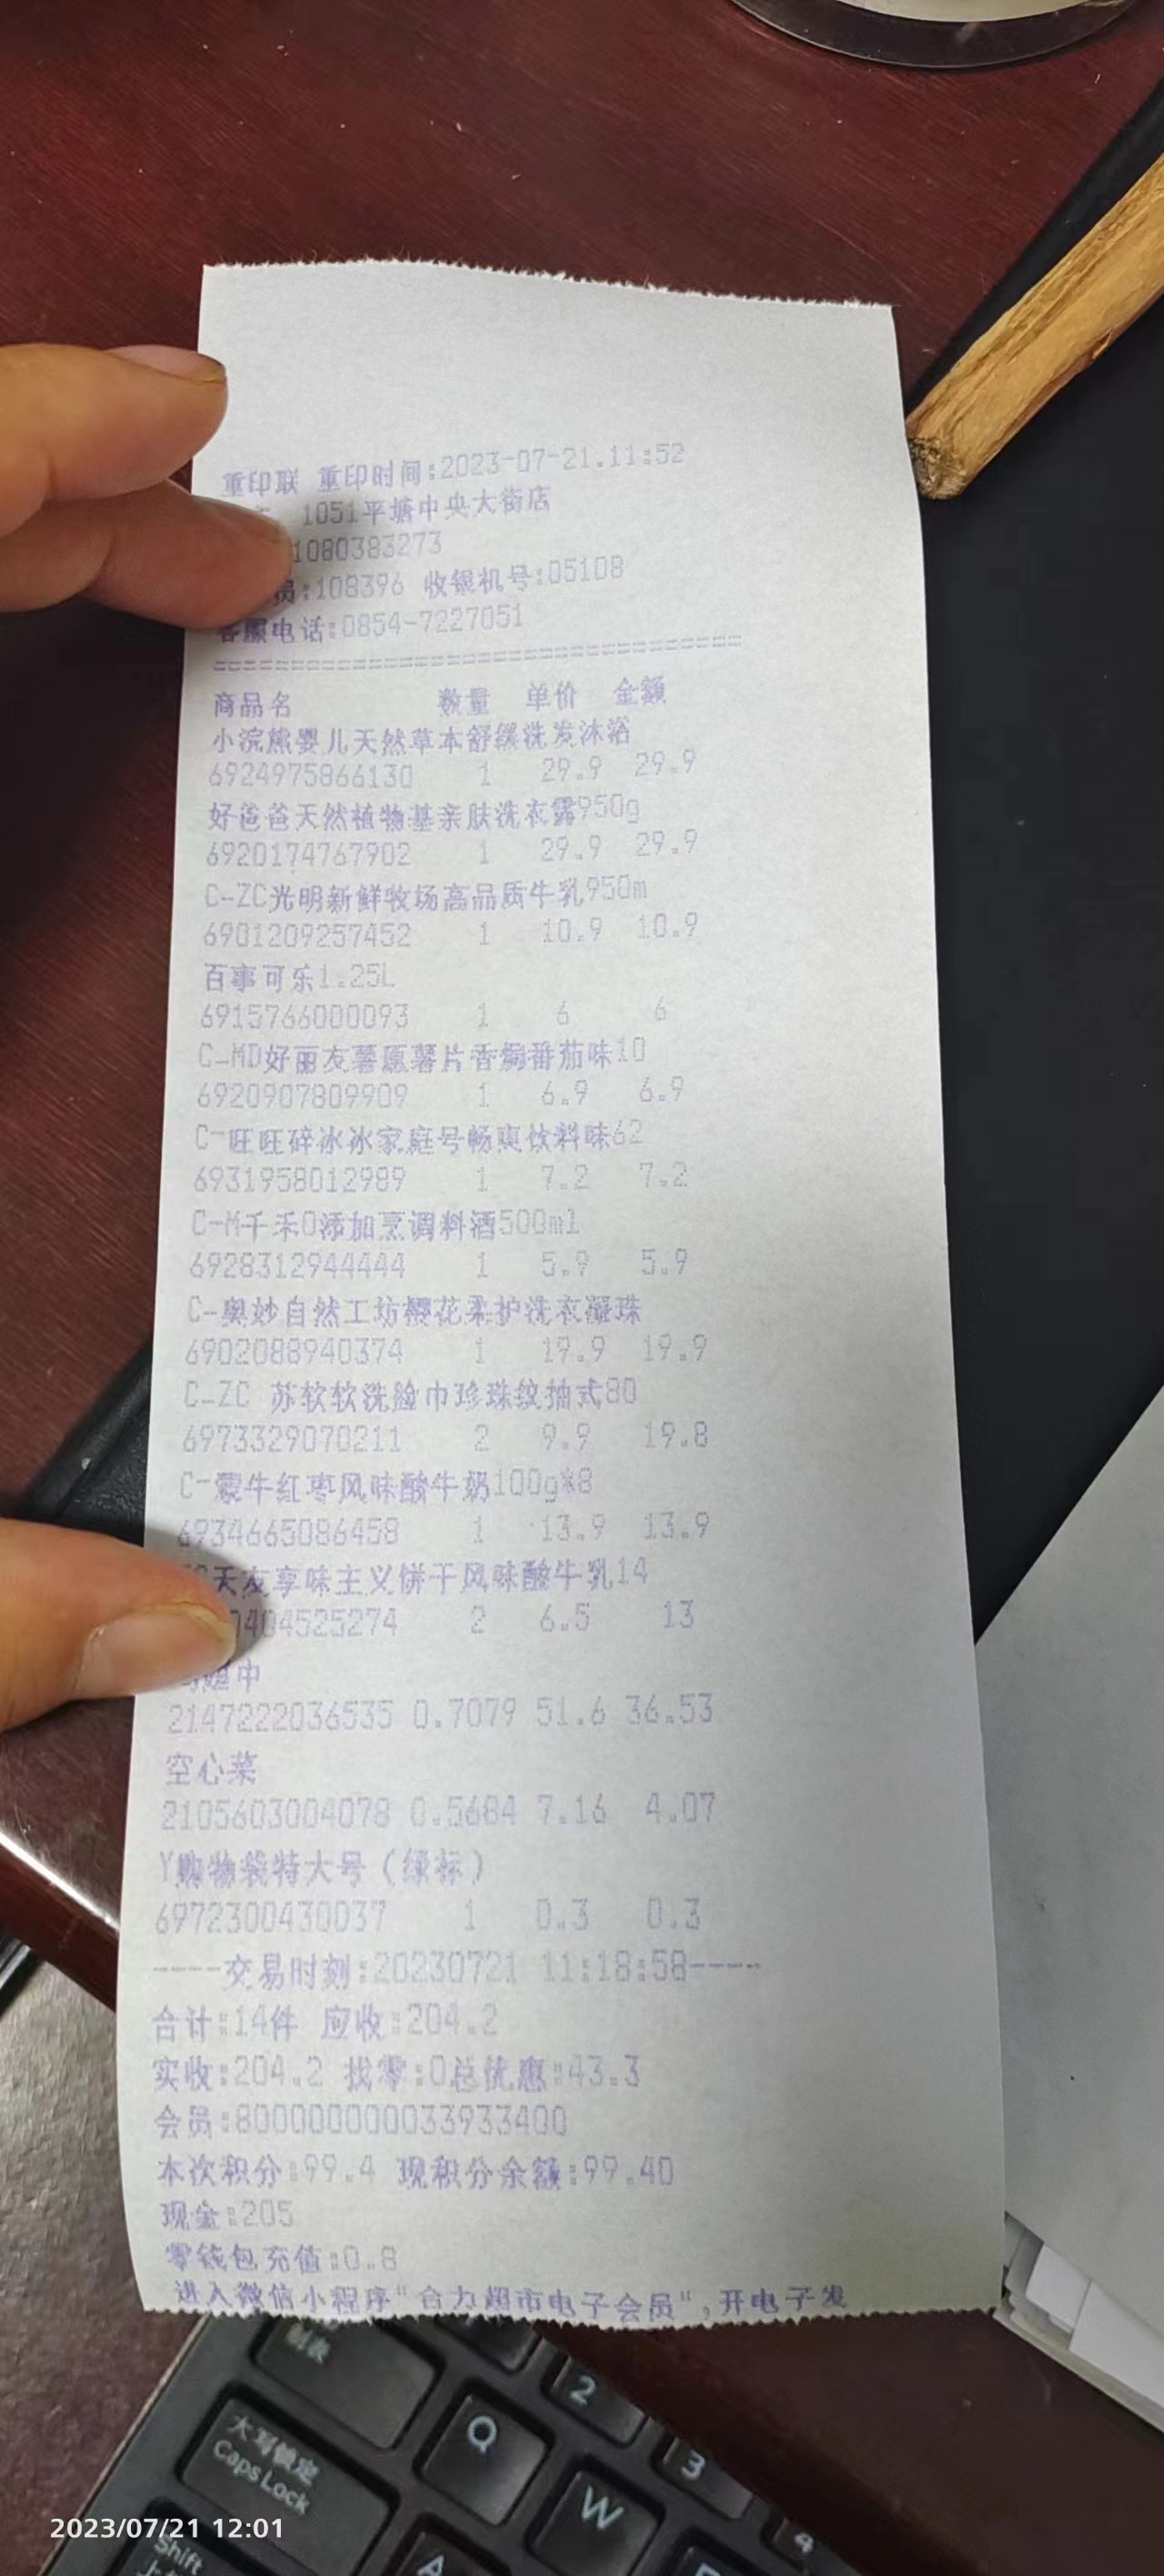 重印联 重印时间:2023-07-21.11:52
1051平塘中央大街店
1080383273
员:108396 收银机号:05108
客服电话:0854-7227051
==================================
商品名 数量 单价 金额
小浣熊婴儿天然草本舒缓洗发沐浴
6924975866130 1 29.9 29.9
好爸爸天然植物基亲肤洗衣露950g
6920174767902 1 29.9 29.9
C-ZC光明新鲜牧场高品质牛乳950m
6901209257452 1 10.9 10.9
百事可乐1.25L
6915766000093 1 6 6
C-MD好丽友薯愿薯片香焗番茄味10
6920907809909 1 6.9 6.9
C-旺旺碎冰冰家庭号畅爽饮料味62
6931958012989 1 7.2 7.2
C-M千禾0添加烹调料酒500ml
6928312944444 1 5.9 5.9
C-奥妙自然工坊樱花柔护洗衣凝珠
6902088940374 1 19.9 19.9
C-ZC 苏软软洗脸巾珍珠纹抽式80
6973329070211 2 9.9 19.8
C-蒙牛红枣风味酸牛奶100g*8
6934665086458 1 13.9 13.9
天友享味主义饼干风味酸牛乳14
0404525274 2 6.5 13
翅中
2147222036535 0.7079 51.6 36.53
空心菜
2105603004078 0.5684 7.16 4.07
Y购物袋特大号（绿标）
6972300430037 1 0.3 0.3
----交易时刻:20230721 11:18:58----
合计:14件 应收:204.2
实收:204.2 找零:0总优惠:43.3
会员:800000000033933400
本次积分:99.4 现积分余额:99.40
现金:205
零钱包充值:0.8
进入微信小程序"合力超市电子会员",开电子发
2
Q
3
大写锁定
Caps Lock
W
4
A
Shift
2023/07/21 12:01